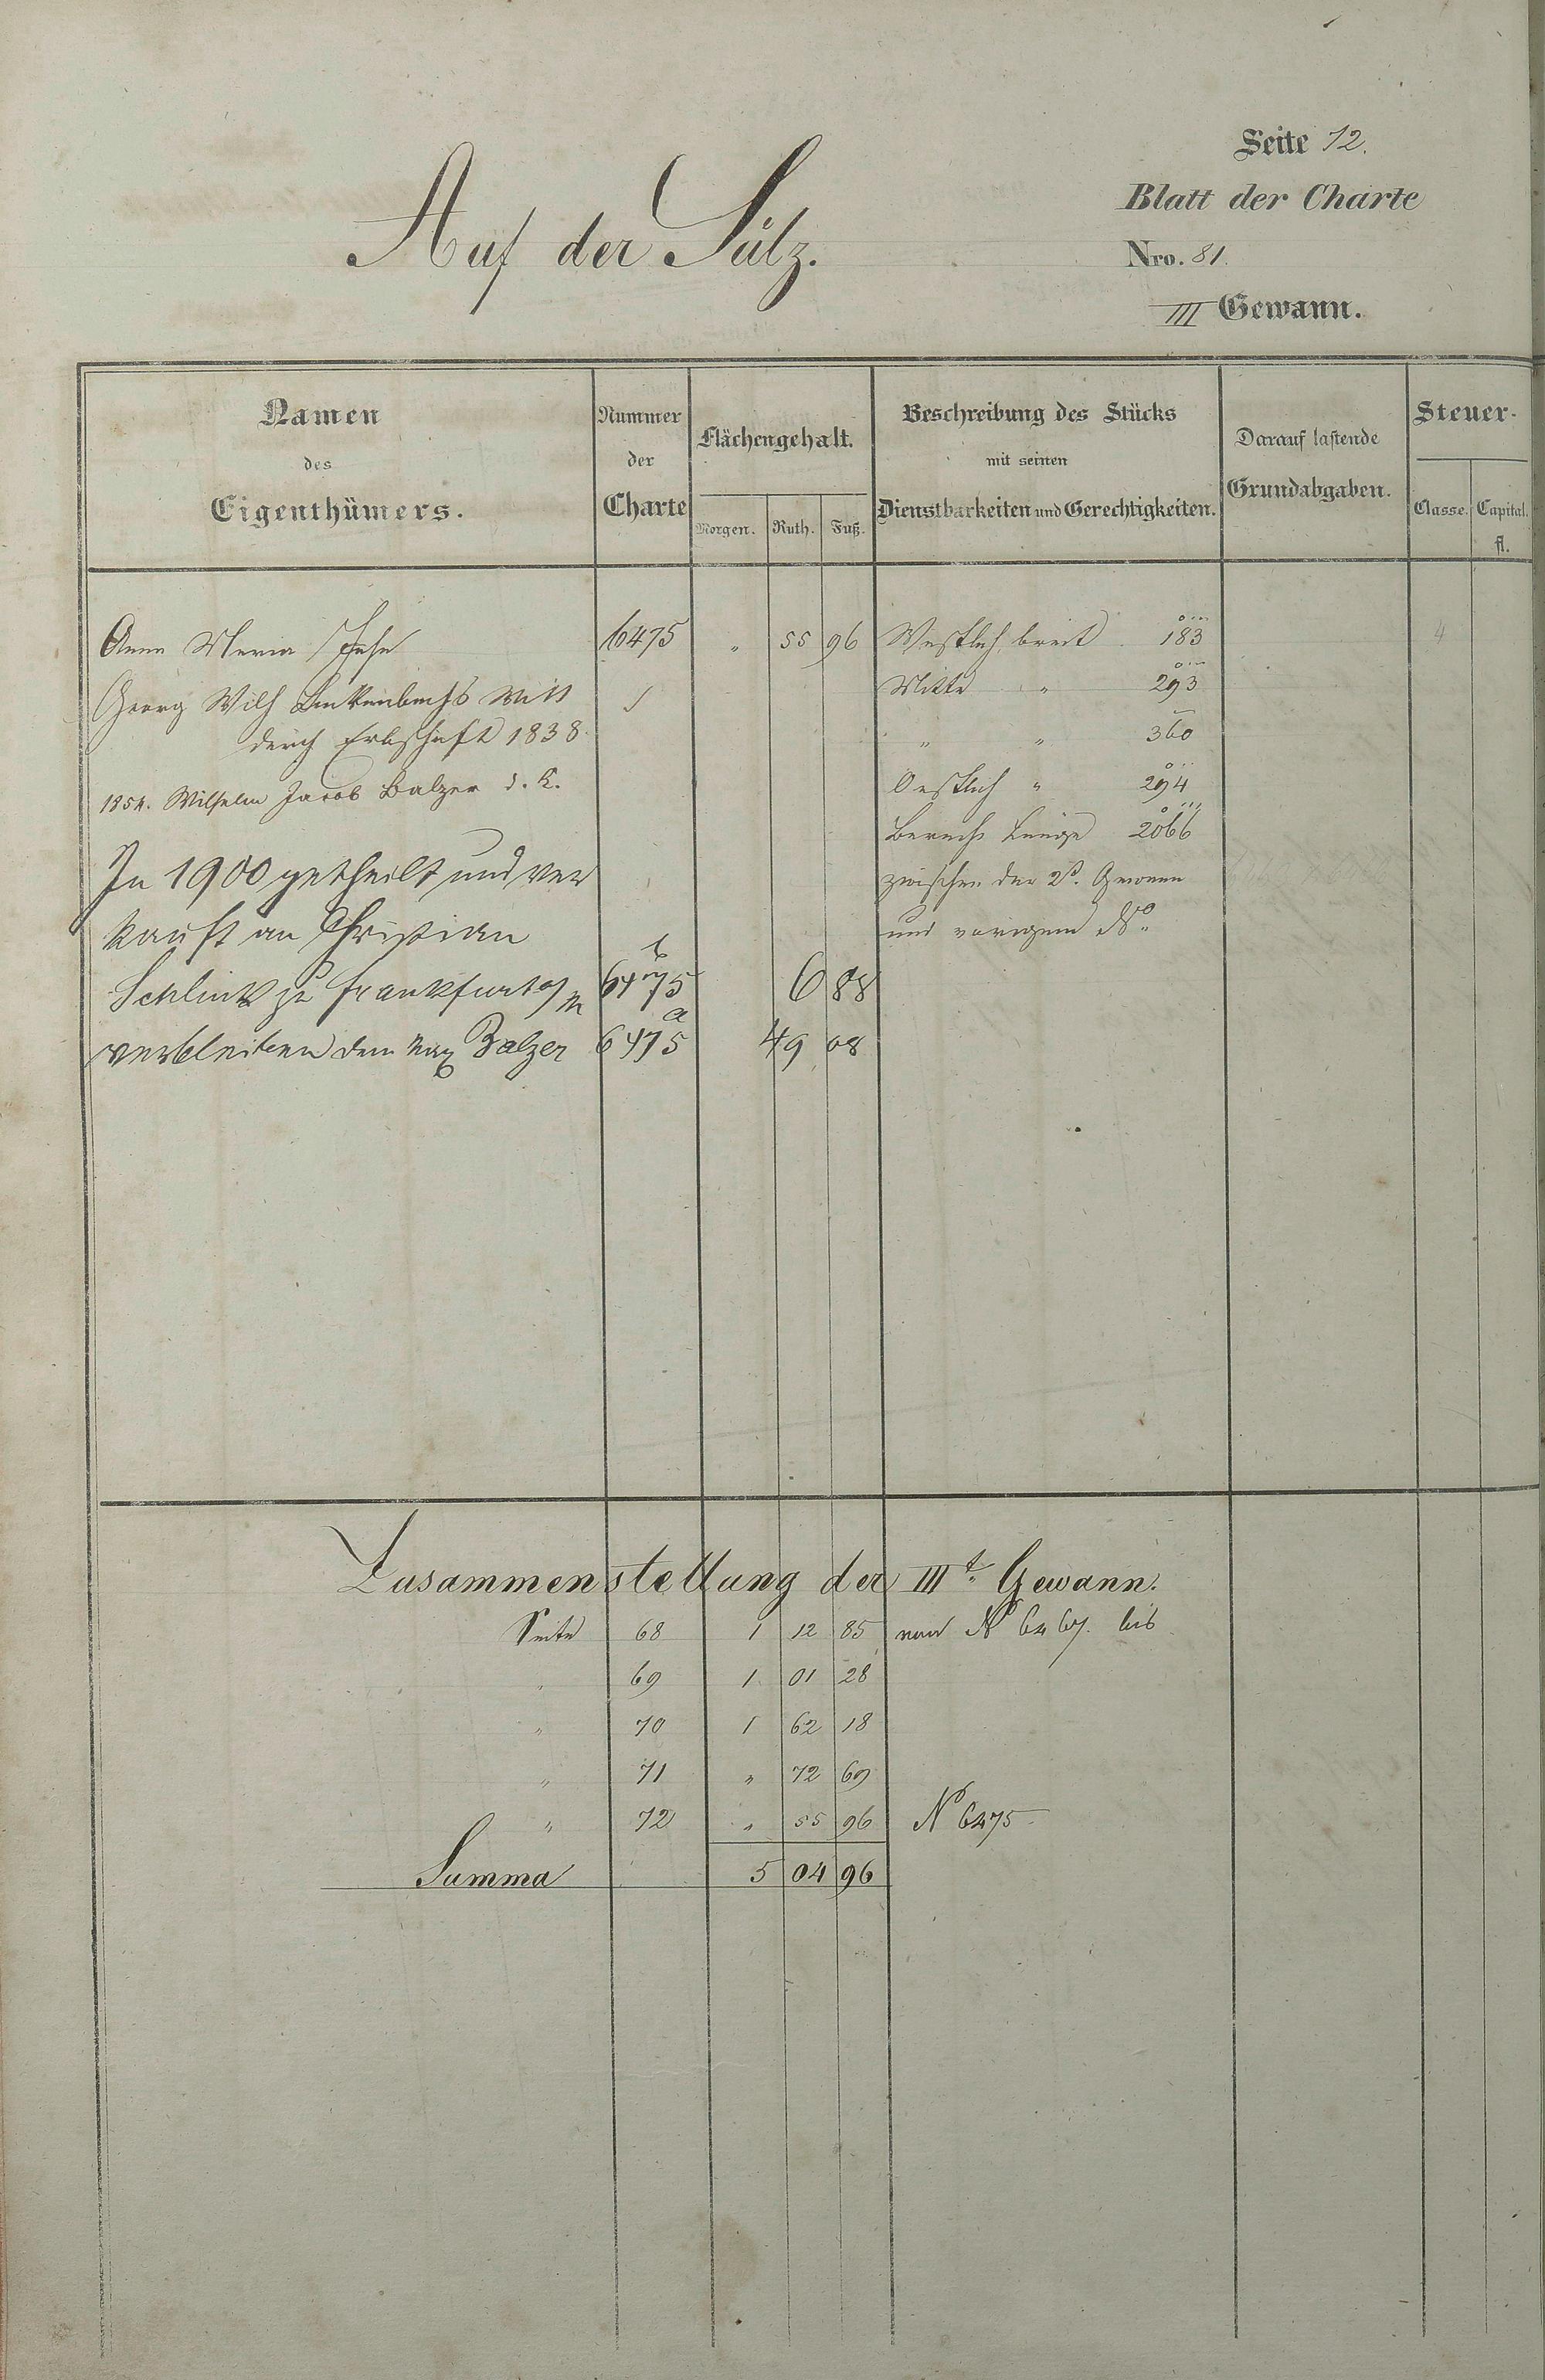 Seite 72.
Blatt der Charte
Auf der Sülz.
Nro. 81.
III Gewann.
Namen
des
Eigenthümers.
Nummer
der
Charte
Flächengehalt.
Morgen. Ruth. Fuß.
Beschreibung des Stücks
mit seinen
Dienstbarkeiten und Gerechtigkeiten.
Darauf lastende
Grundabgaben.
Steuer-
Classe. Capital.
fl.
Anna Maria 6475 " 55 96 Westlich breit 183 4
Georg Wilh Mitte " 293
durch Erbschaft 1838 " " 360
1854. Wilhelm Jacob Balzer d. K. Oestlich " 294
Berech. Länge 2066
In 1900 getheilt und ver zwischen der 2t. Gewann
kauft an Christian und vorigem No.
Schlink zu Frankfurt a/m 6475 b 6 88
verbleiben dem Balzer 6475 a 49 08
Zusammenstellung der IIIt. Gewann.
Seite 68 1 12 85 von No 6467. bis
" 69 1 01 28
" 70 1 62 18
" 71 " 72 69
" 72 " 55 96 No 6475
Summa 5 04 96